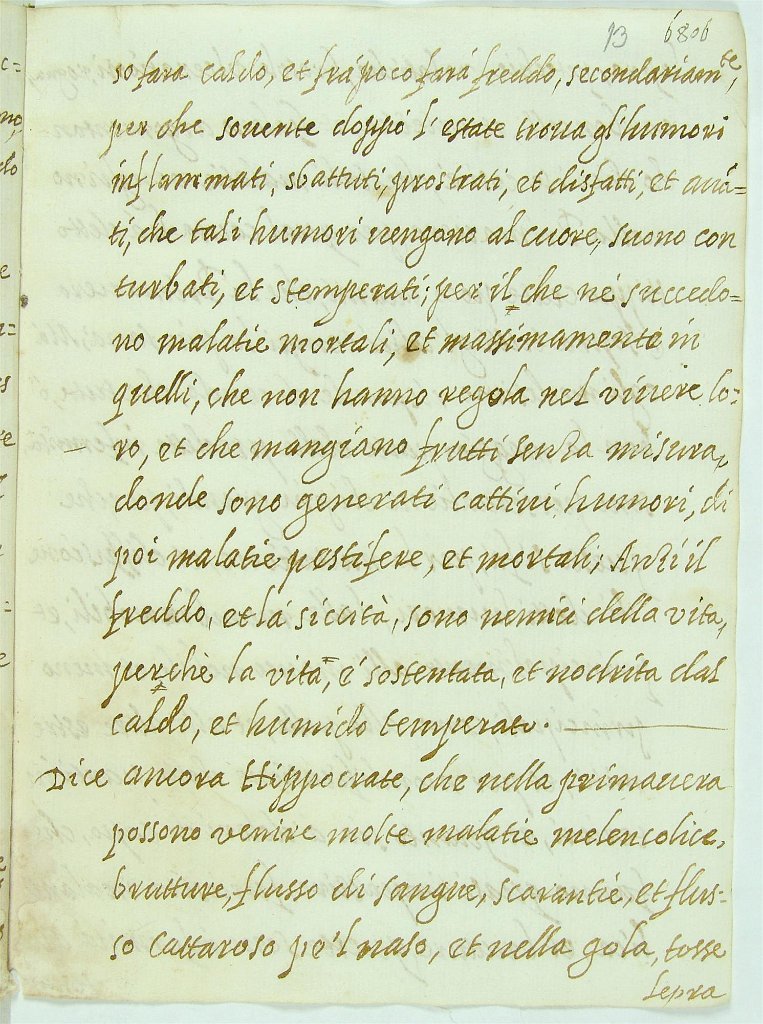 13 6806
so farà caldo, et frà poco farà freddo, secondariam.te,
per che souente doppò l'estate troua gl'humori
inflammati, sbattuti, prostrati, et disfatti, et auā=
ti, che tali humori uengono al cuore, suono con
turbati, et stemperati; per il che né succedo=
no malatie mortali, et massimamente in
quelli, che non hanno regola nel viuere lo=
ro, et che mangiano frutti senza misura,
donde sono generati cattiui humori, di
poi malatie pestifere, et mortali; Anzi il
freddo, et la siccità, sono nemici della vita,
perchè la vita, e' sostentata, et nodrita dal
caldo, et humido temperato.
Dice ancora Hippocrate, che nella primauera
possono venire molte malatie melencolice,
brutture, flusso di sangue, scarantie, et flus=
so cattaroso pe'l naso, et nella gola, tosse
lepra